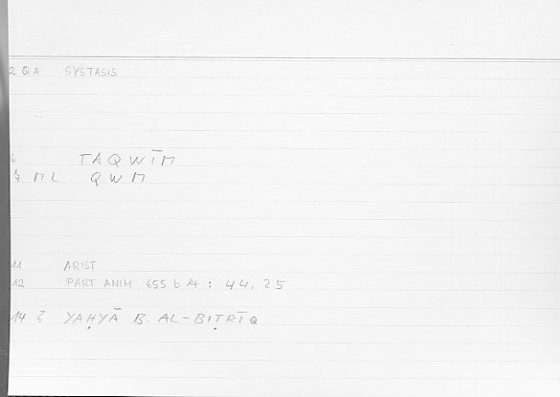 2 QA SYSTASIS
6 TAQWĪM
7 ML QWM
11 ARIST
12 PART ANIM 655 b : 44, 25
14 YAḤYĀ B. AL-BIṬRĪQ